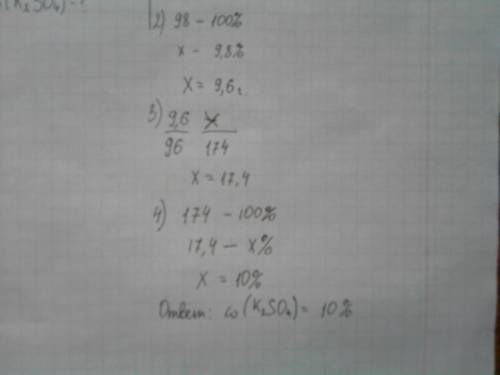 (K₂SO₄) - ?
2) 98 - 100%
x - 9,8%
X = 9,6 г.
3) 9,6 X
96 174
X = 17,4
4) 174 - 100%
17,4 - X%
X = 10%
Ответ: ω (K₂SO₄) = 10%